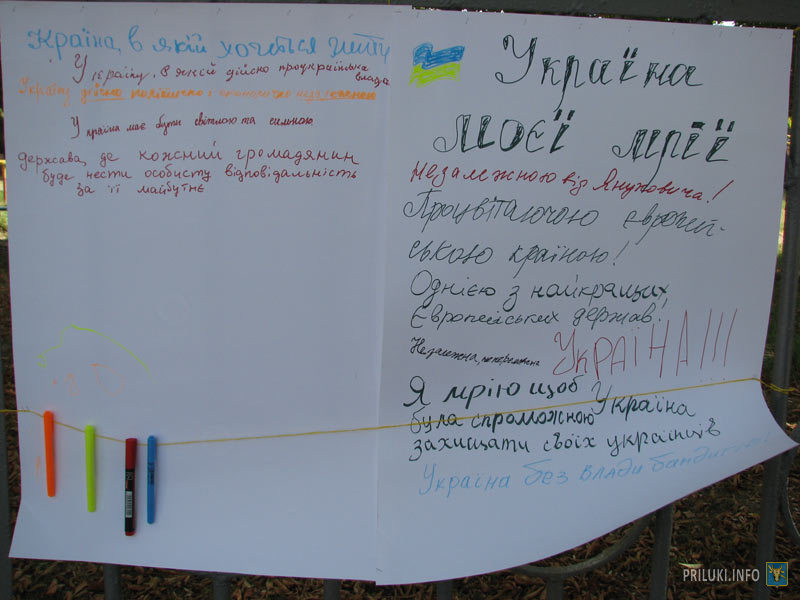 Країна, в якій хочеться жити
Україну, в якій дійсно проукраїнська
влада
Україну дійсно політично і економічно незалежною
Україна має бути світлою та сильною
держава, де кожний громадянин
буде нести особисту відповідальність
за її майбутнє
Україна
моєї мрії
Незалежною від Януковича!
Процвітаючою європей-
ською країною!
Однією з найкращих
Європейських держав!
Незалежна,
УКРАЇНА!!!
Я мрію щоб Україна
була спроможною
захищати своїх українців
Україна без влади бандитів!
PRILUKI.INFO